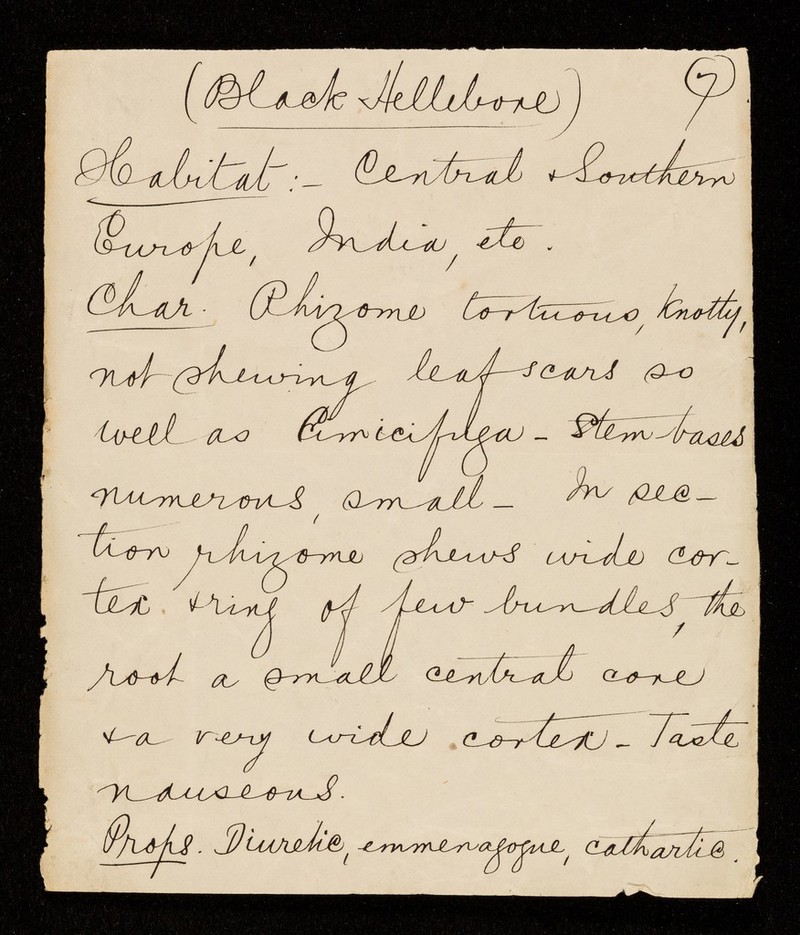 (Black Hellebore) 7
Habitat :- Central & Southern
Europe, India, etc.
Char. Rhizome tortuous, knotty,
not shewing leaf scars so
well as Cimicifuga - Stem-bases
numerous, small - In sec-
tion rhizome shews wide cor-
tex & ring of few bundles, the
root a small central core
& a very wide cortex - Taste
nauseous.
Props. Diuretic, emmenagogue, cathartic.